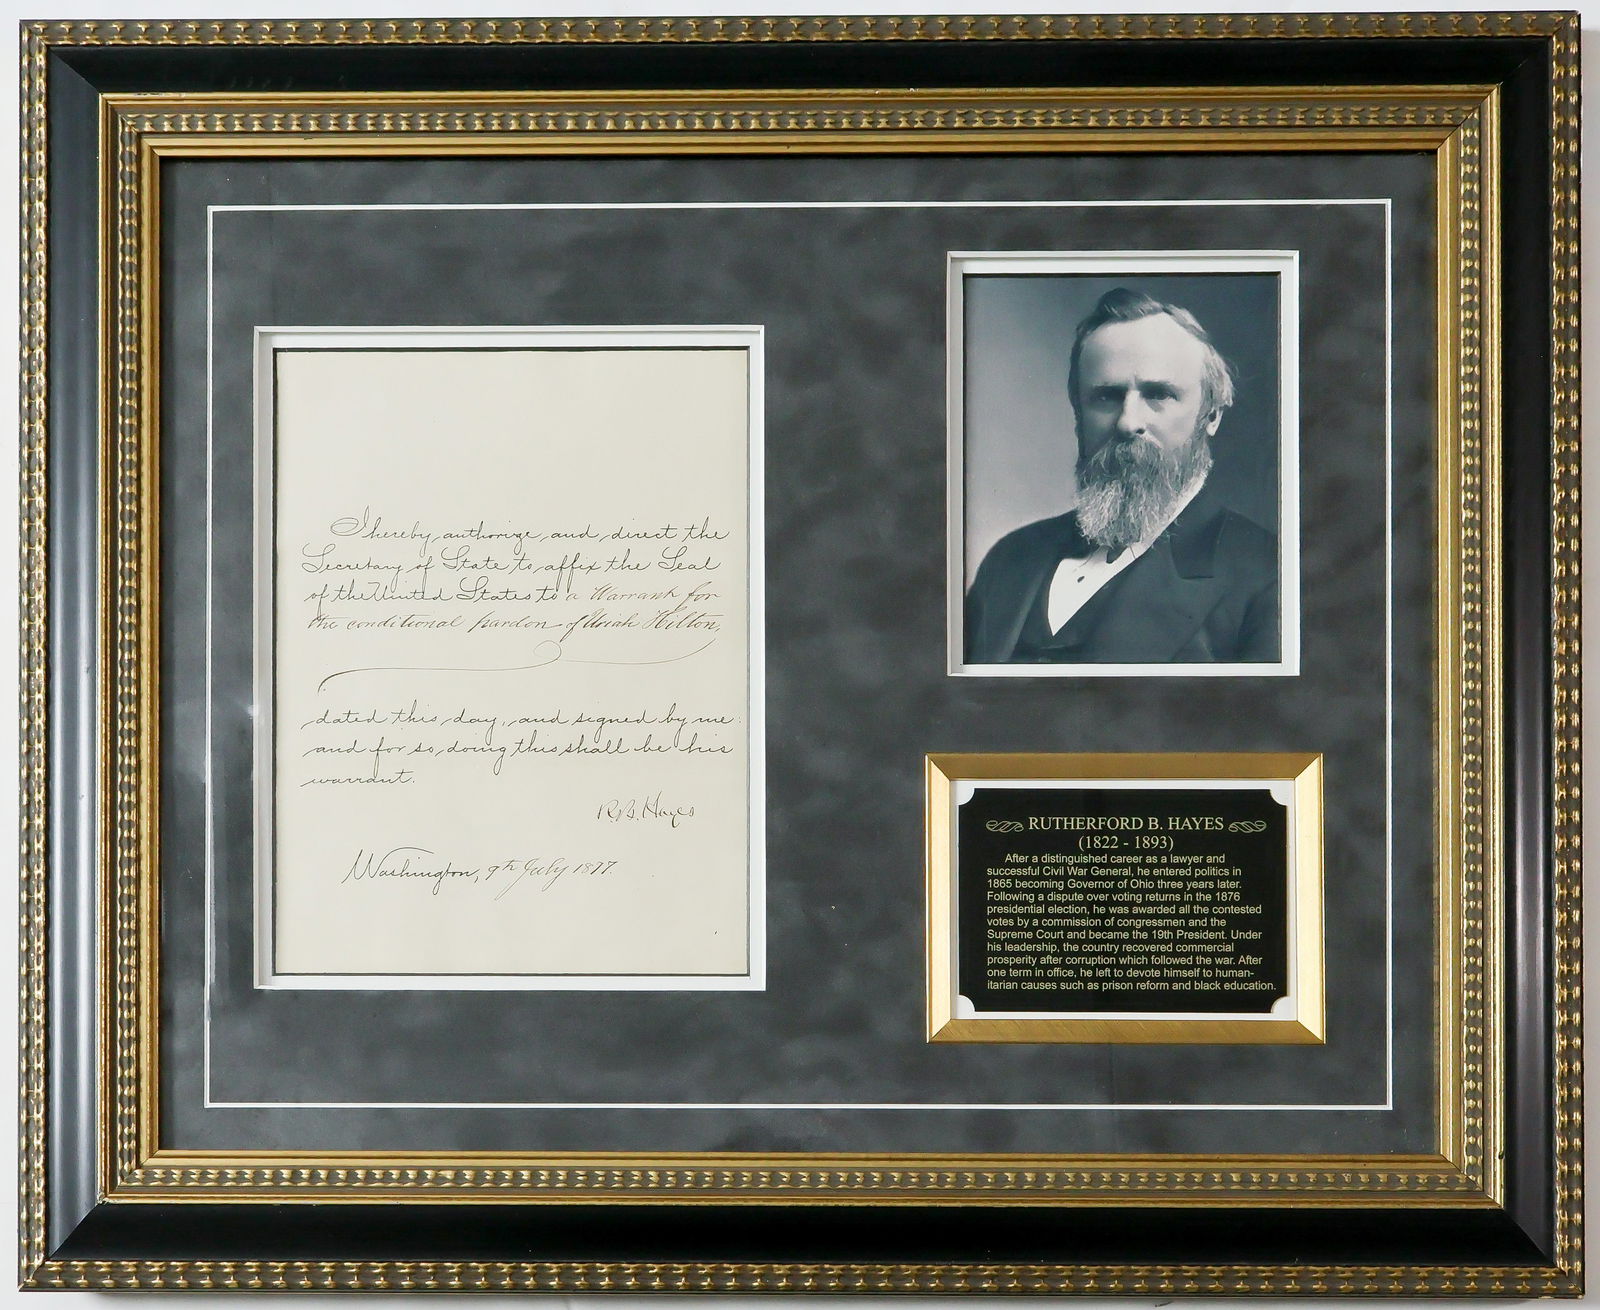 I hereby authorize and direct the
Secretary of State to affix the Seal
of the United States to a Warrant for
the conditional pardon of Uriah Hilton,
dated this day, and signed by me:
and for so doing this shall be his
warrant.
R.B. Hayes
Washington, 9th July 1877.
RUTHERFORD B. HAYES
(1822 - 1893)
After a distinguished career as a lawyer and
successful Civil War General, he entered politics in
1865 becoming Governor of Ohio three years later.
Following a dispute over voting returns in the 1876
presidential election, he was awarded all the contested
votes by a commission of congressmen and the
Supreme Court and became the 19th President. Under
his leadership, the country recovered commercial
prosperity after corruption which followed the war. After
one term in office, he left to devote himself to human-
itarian causes such as prison reform and black education.